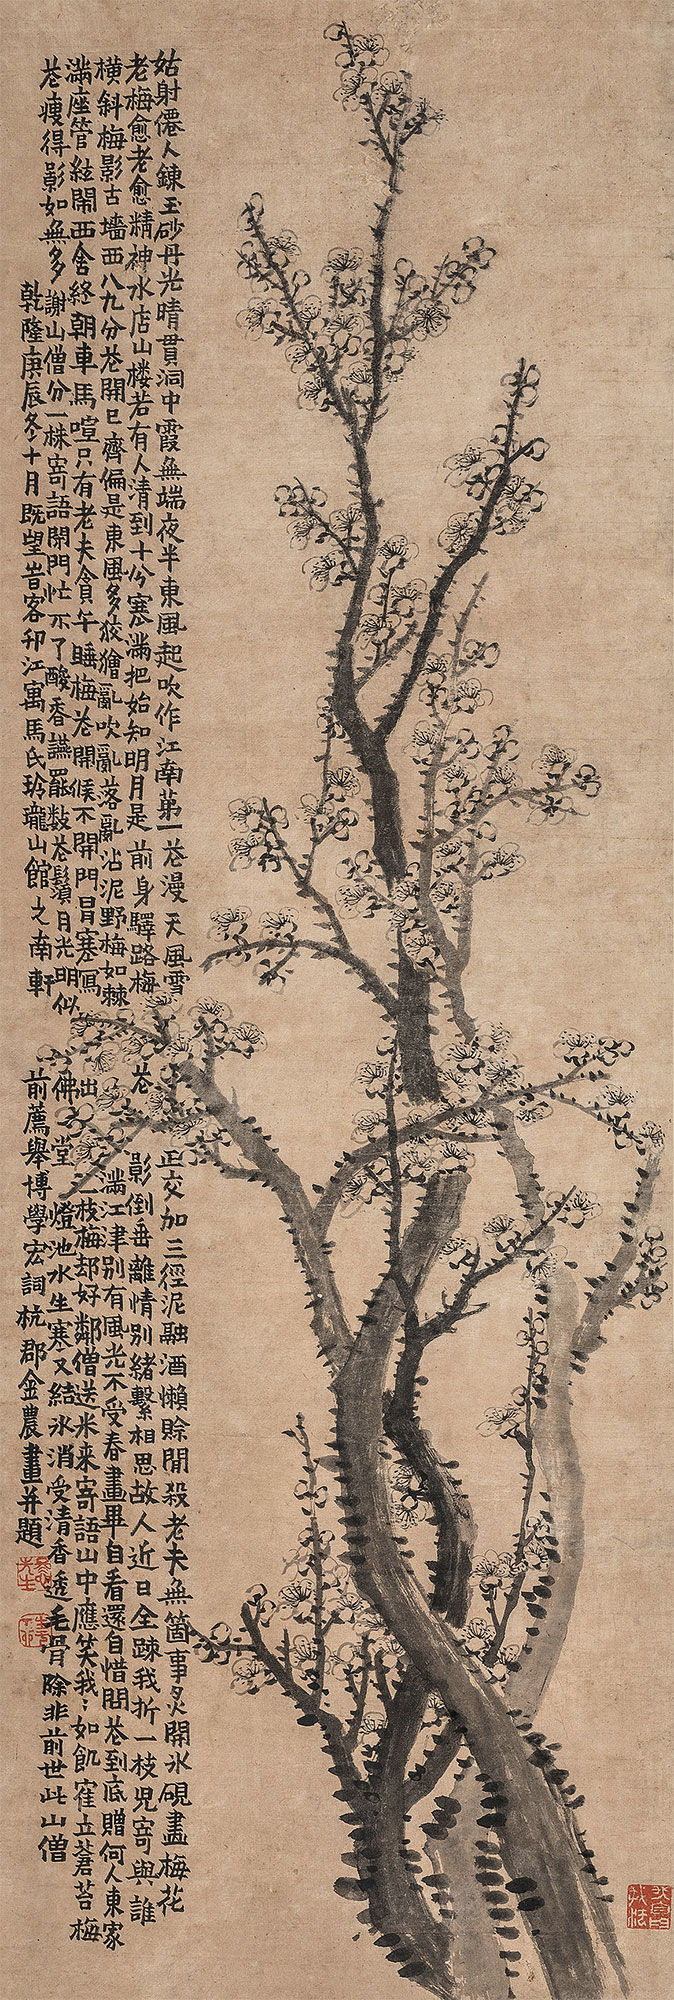 姑射僊人鍊玉砂丹光晴貫洞中霞無端夜半東風起吹作江南第一花漫天風雪正交加三徑泥融酒懶賒閒殺老夫無箇事炙開氷硯畫梅花
老梅愈老愈精神水店山樓若有人清到十分寒滿把始知明月是前身驛路梅花影倒垂離情別緒繫相思故人近日全疎我折一枝兒寄與誰
橫斜梅影古墻西八九分花開已齊偏是東風多狡獪亂吹亂落亂沾泥野梅如棘滿江津別有風光不受春畫畢自看還自惜問花到底贈何人東家
滿座管絃鬧西舍終朝車馬喧只有老夫貪午睡梅花開候不開門冒寒寫出一枝梅却好鄰僧送米来寄語山中應笑我〻如飢雀立蒼苔梅
花瘦得影如無多謝山僧分一株寄語開門忙不了酸香讌罷數花鬚月光明似佛堂燈池水生寒又結氷消受清香透毛骨除非前世此山僧
乾隆庚辰冬十月既望昔客邗江寓馬氏玲瓏山館之南軒前薦舉博學宏詞杭郡金農畫并題